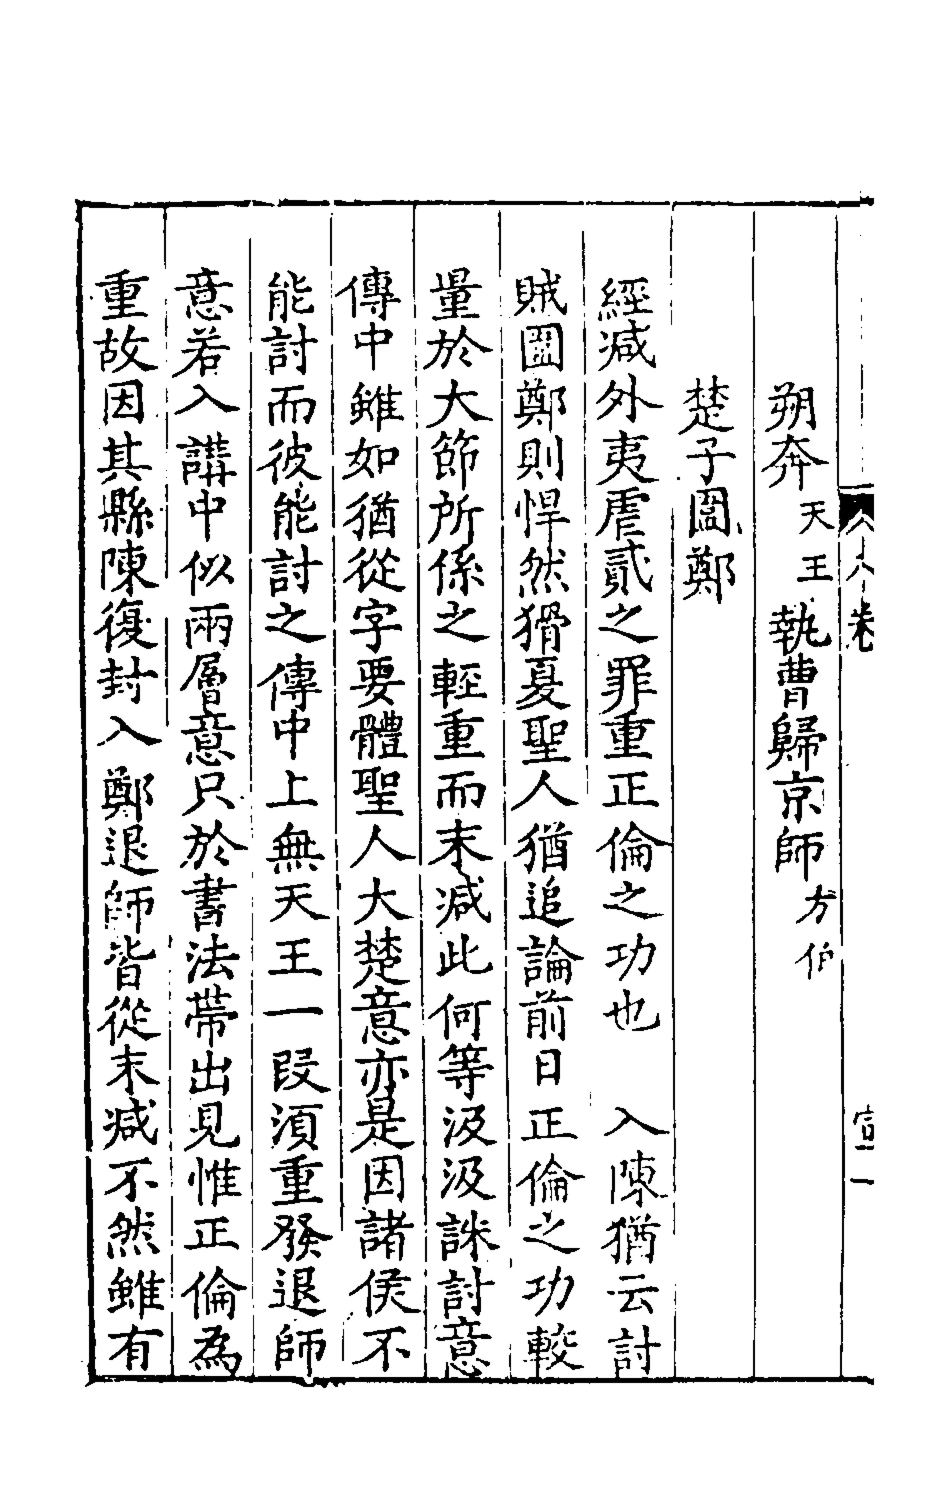 朔奔天王執曹歸京師方伯
楚子圍鄭
經减外夷虐貳之罪重正倫之功也　入陳猶云討
賊圍鄭則悍然猾夏聖人猶追論前日正倫之功較
量於大節所係之輕重而末减此何等汲汲誅討意
傳中雖如猶從字要體聖人大楚意亦是因諸侯不
能討而彼能討之傳中上無天王一段須重發退師
意若入講中似兩層意只於書法帶出見惟正倫為
重故因其縣陳復封入鄭退師皆從末减不然雖有
卷
宣一